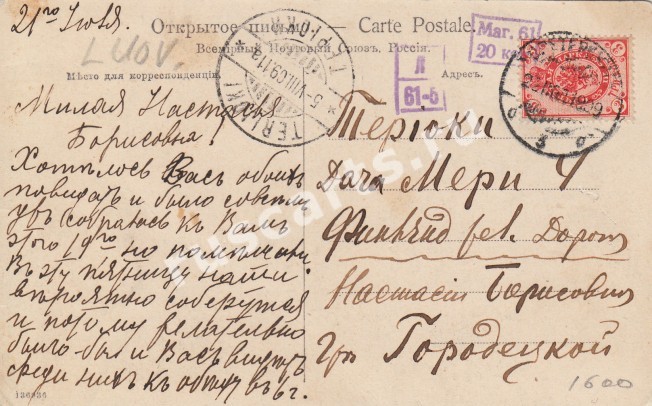 21го Июля
Открытое письмо. — Carte Postale.
Всемірный Почтовый Союзъ, Россія.
Мѣсто для корреспонденціи.
Адресъ.
LUOV.
TERIJOKI
5.VIII.09
Маг. 61
20 к
Л
61-б
Милая Настасья
Борисовна!
Хотѣлось Васъ обоихъ
повидать и было совсѣмъ
ужъ собралась къ Вамъ
этого 19го но помѣшали.
Въ эту пятницу наши
вѣроятно соберутся
и потому желательно
было-бы и Васъ видѣть
среди нихъ къ обѣду въ 6 ч.
Теріоки
Дача Мери 4
Финлянд. жел. Дорога
Настасіи Борисовнѣ
Городецкой
136936
1600
ruscards.ru